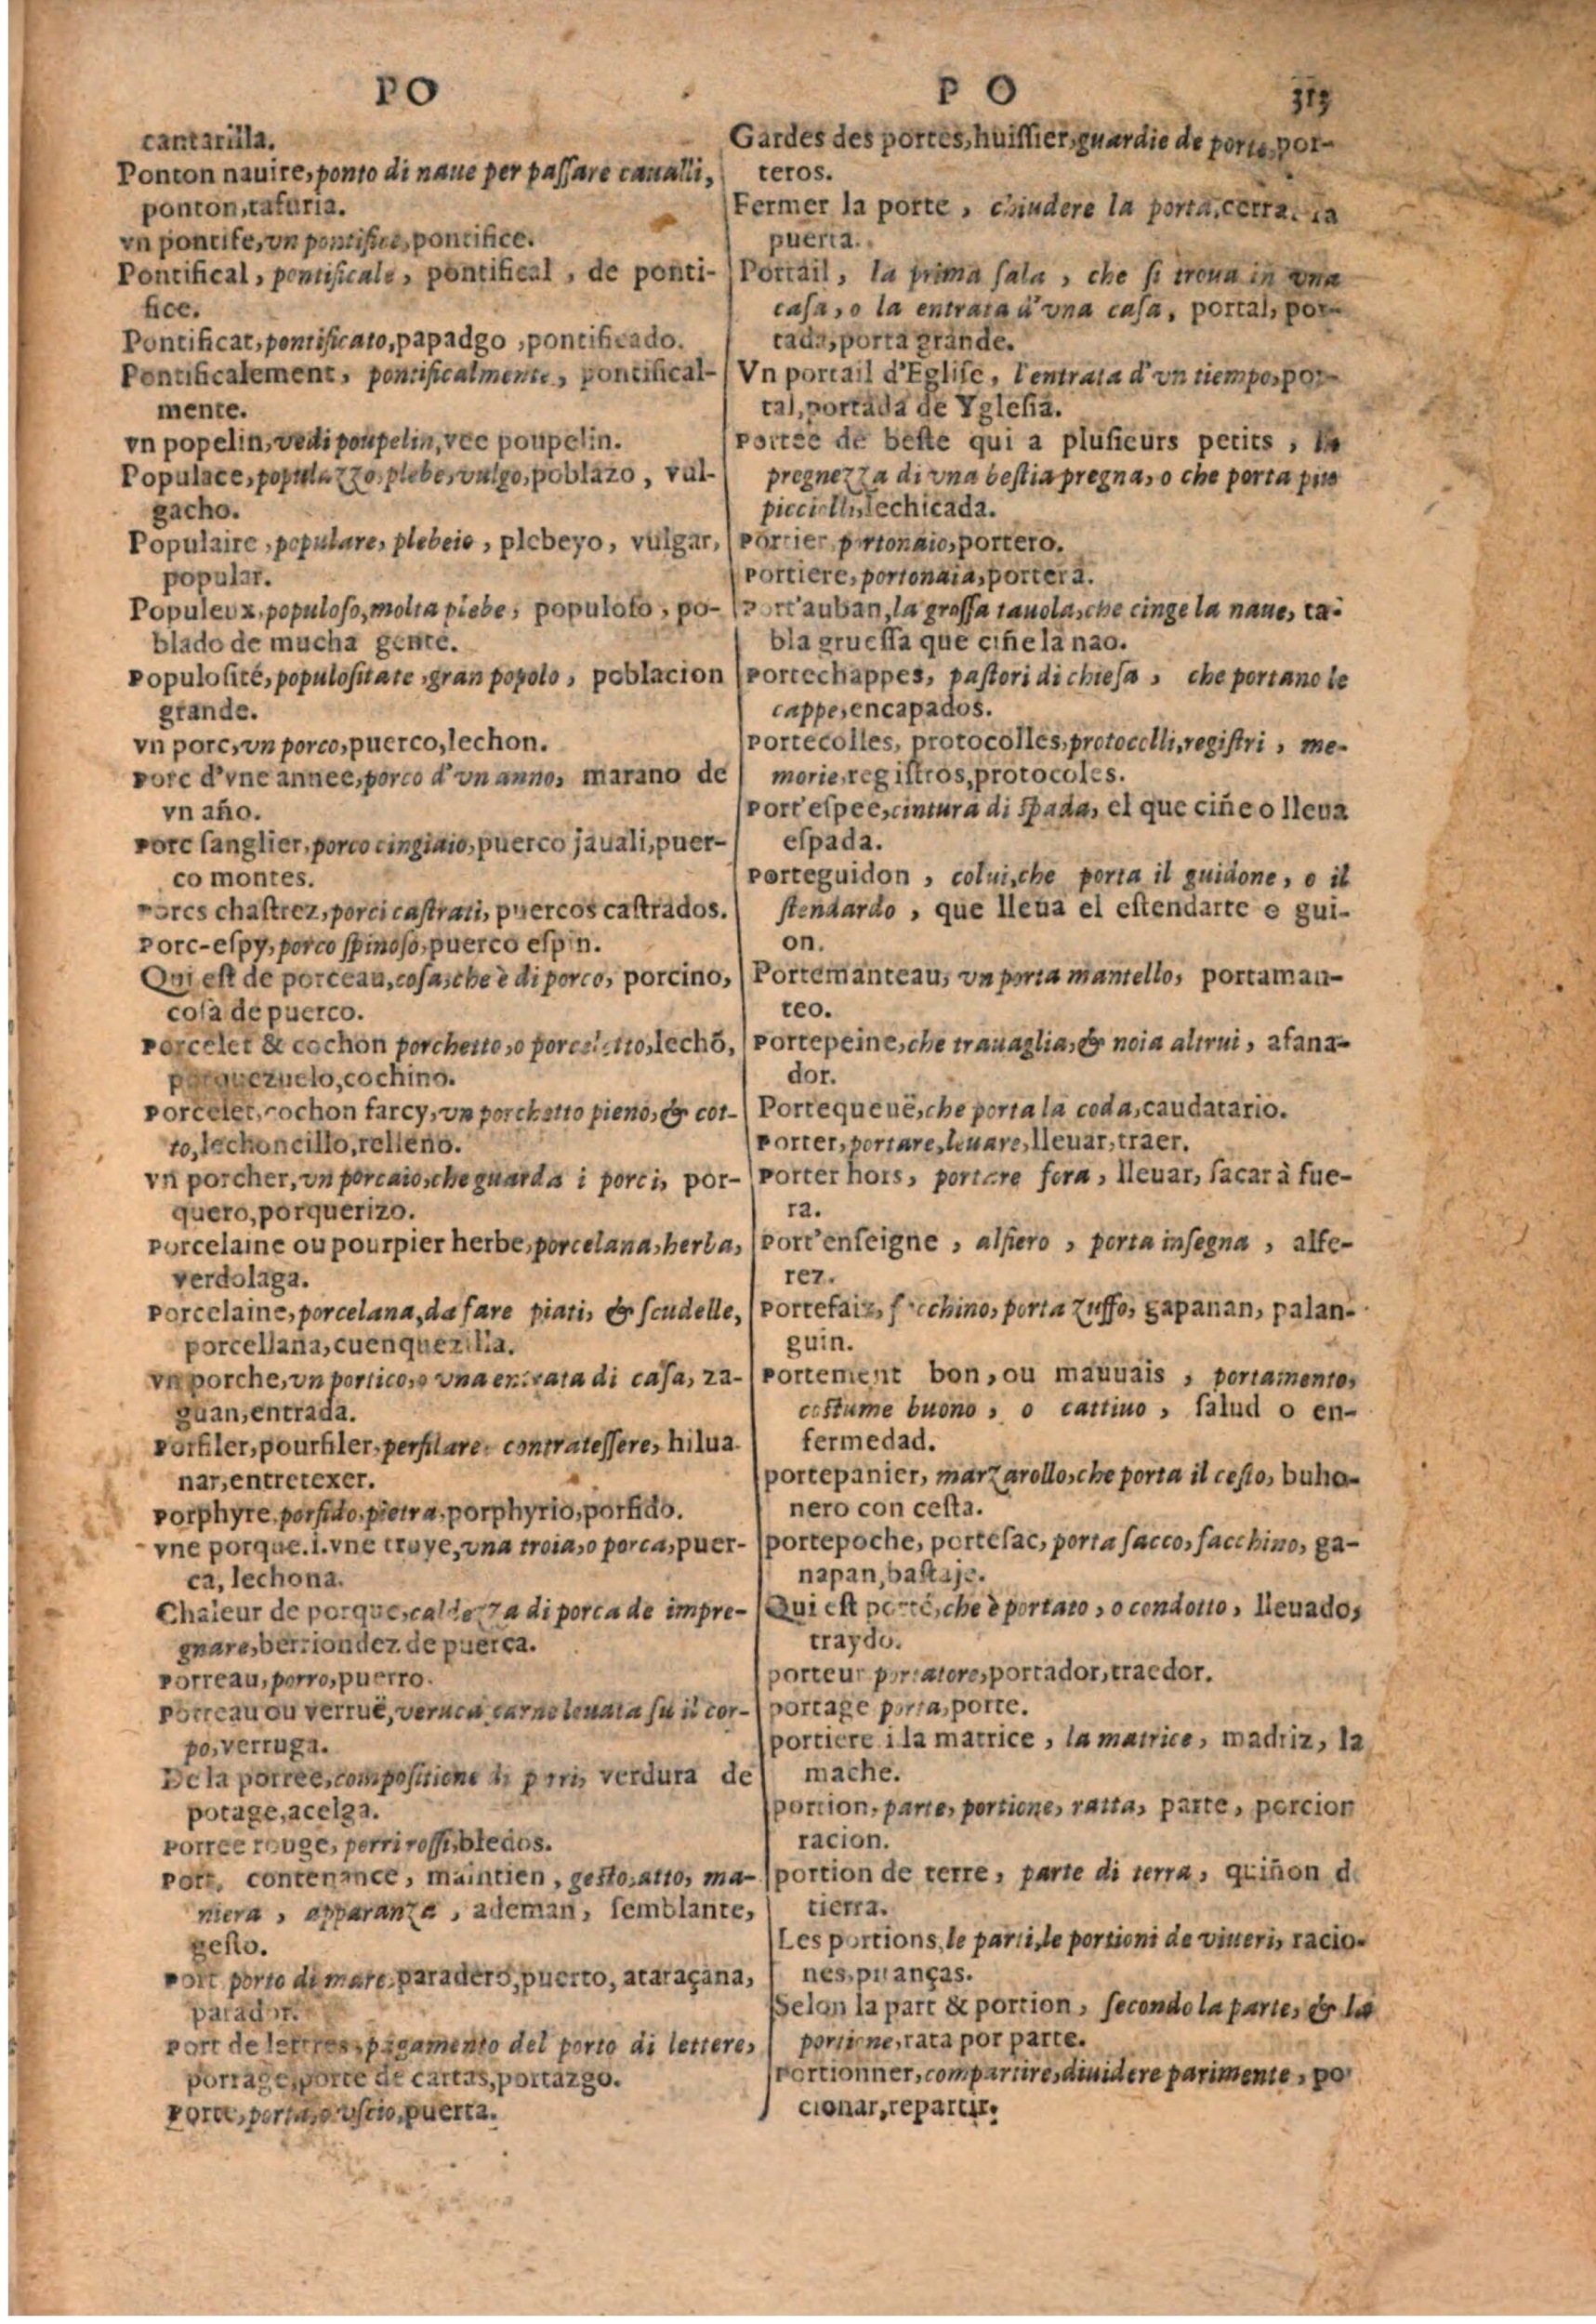 PO
cantarilla.
Ponton nauire, ponto di naue per paſſare caualli,
ponton, tafuria.
vn pontife, vn pontifice, pontifice.
Pontifical, pontificale, pontifical, de ponti-
fice.
Pontificat, pontificato, papadgo, pontificado.
Pontificalement, pontificalmente, pontifical-
mente.
vn popelin, vedi poupelin, vee poupelin.
Populace, populazzo, plebe, vulgo, poblazo, vul-
gacho.
Populaire, populare, plebeio, plebeyo, vulgar,
popular.
Populeux, populoſo, molta plebe, populoſo, po-
blado de mucha gente.
Populoſité, populoſitate, gran popolo, poblacion
grande.
vn porc, vn porco, puerco, lechon.
Porc d'vne annee, porco d'vn anno, marano de
vn año.
Porc ſanglier, porco cingiaio, puerco jauali, puer-
co montes.
Porcs chaſtrez, porci caſtrati, puercos caſtrados.
Porc-eſpy, porco ſpinoſo, puerco eſpin.
Qui eſt de porceau, coſa, che è di porco, porcino,
coſa de puerco.
Porcelet & cochon porchetto, o porceletto, lechõ,
porquezuelo, cochino.
Porcelet, cochon farcy, vn porchetto pieno, & cot-
to, lechoncillo, relleno.
vn porcher, vn porcaio, che guarda i porci, por-
quero, porquerizo.
Porcelaine ou pourpier herbe, porcelana, herba,
verdolaga.
Porcelaine, porcelana, da fare piati, & ſcudelle,
porcellana, cuenquezilla.
vn porche, vn portico, o vna entrata di caſa, za-
guan, entrada.
Porfiler, pourfiler, perfilare, contrateſſere, hilua-
nar, entretexer.
Porphyre, porfido, pietra, porphyrio, porfido.
vne porque. i. vne truye, vna troia, o porca, puer-
ca, lechona.
Chaleur de porque, caldezza di porca de impre-
gnare, berriondez de puerca.
Porreau, porro, puerro.
Porreau ou verruë, veruca, carne leuata ſu il cor-
po, verruga.
De la porree, compoſitione di porri, verdura de
potage, acelga.
Porree rouge, porri roſſi, bledos.
Port, contenance, maintien, geſto, atto, ma-
niera, apparanza, ademan, ſemblante,
geſto.
Port porto di mare, paradero, puerto, ataraçana,
parador.
Port de lettres, pagamento del porto di lettere,
portage, porte de cartas, portazgo.
Porte, porta, o vſcio, puerta.
P O
Gardes des portes, huiſſier, guardie de porte, por-
teros.
Fermer la porte, chiudere la porta, cerra la
puerta.
Portail, la prima ſala, che ſi troua in vna
caſa, o la entrata d'vna caſa, portal, por-
tada, porta grande.
Vn portail d'Egliſe, l'entrata d'vn tiempo, por-
tal, portada de Ygleſia.
Portee de beſte qui a pluſieurs petits, la
pregnezza di vna beſtia pregna, o che porta piu
picciolli, lechicada.
Portier portonaio, portero.
Portiere, portonaia, portera.
Port'auban, la groſſa tauola, che cinge la naue, ta-
bla grueſſa que ciñe la nao.
Portechappes, paſtori di chieſa, che portano le
cappe, encapados.
Portecolles, protocolles, protocolli, regiſtri, me-
morie, regiſtros, protocoles.
Port'eſpee, cintura di ſpada, el que ciñe o lleua
eſpada.
Porteguidon, colui, che porta il guidone, o il
ſtendardo, que lleua el eſtendarte o gui-
on.
Portemanteau, vn porta mantello, portaman-
teo.
Portepeine, che trauaglia, & noia altrui, afana-
dor.
Portequeuë, che porta la coda, caudatario.
Porter, portare, leuare, lleuar, traer.
Porter hors, portare fora, lleuar, ſacar à fue-
ra.
Port'enſeigne, alfiero, porta inſegna, alfe-
rez.
Portefaix, facchino, porta zuffo, gapanan, palan-
guin.
Portement bon, ou mauuais, portamento,
coſtume buono, o cattiuo, ſalud o en-
fermedad.
portepanier, marzarollo, che porta il ceſto, buho-
nero con ceſta.
portepoche, porteſac, porta ſacco, facchino, ga-
napan, baſtaje.
Qui eſt porté, che è portato, o condotto, lleuado,
traydo.
porteur portatore, portador, traedor.
portage porta, porte.
portiere i la matrice, la matrice, madriz, la
mache.
portion, parte, portione, ratta, parte, porcion
racion.
portion de terre, parte di terra, quiñon d
tierra.
Les portions, le parti, le portioni de viueri, racio-
nes, pitanças.
Selon la part & portion, ſecondo la parte, & la
portione, rata por parte.
Portionner, compartire, diuidere parimente, po
cionar, repartir.